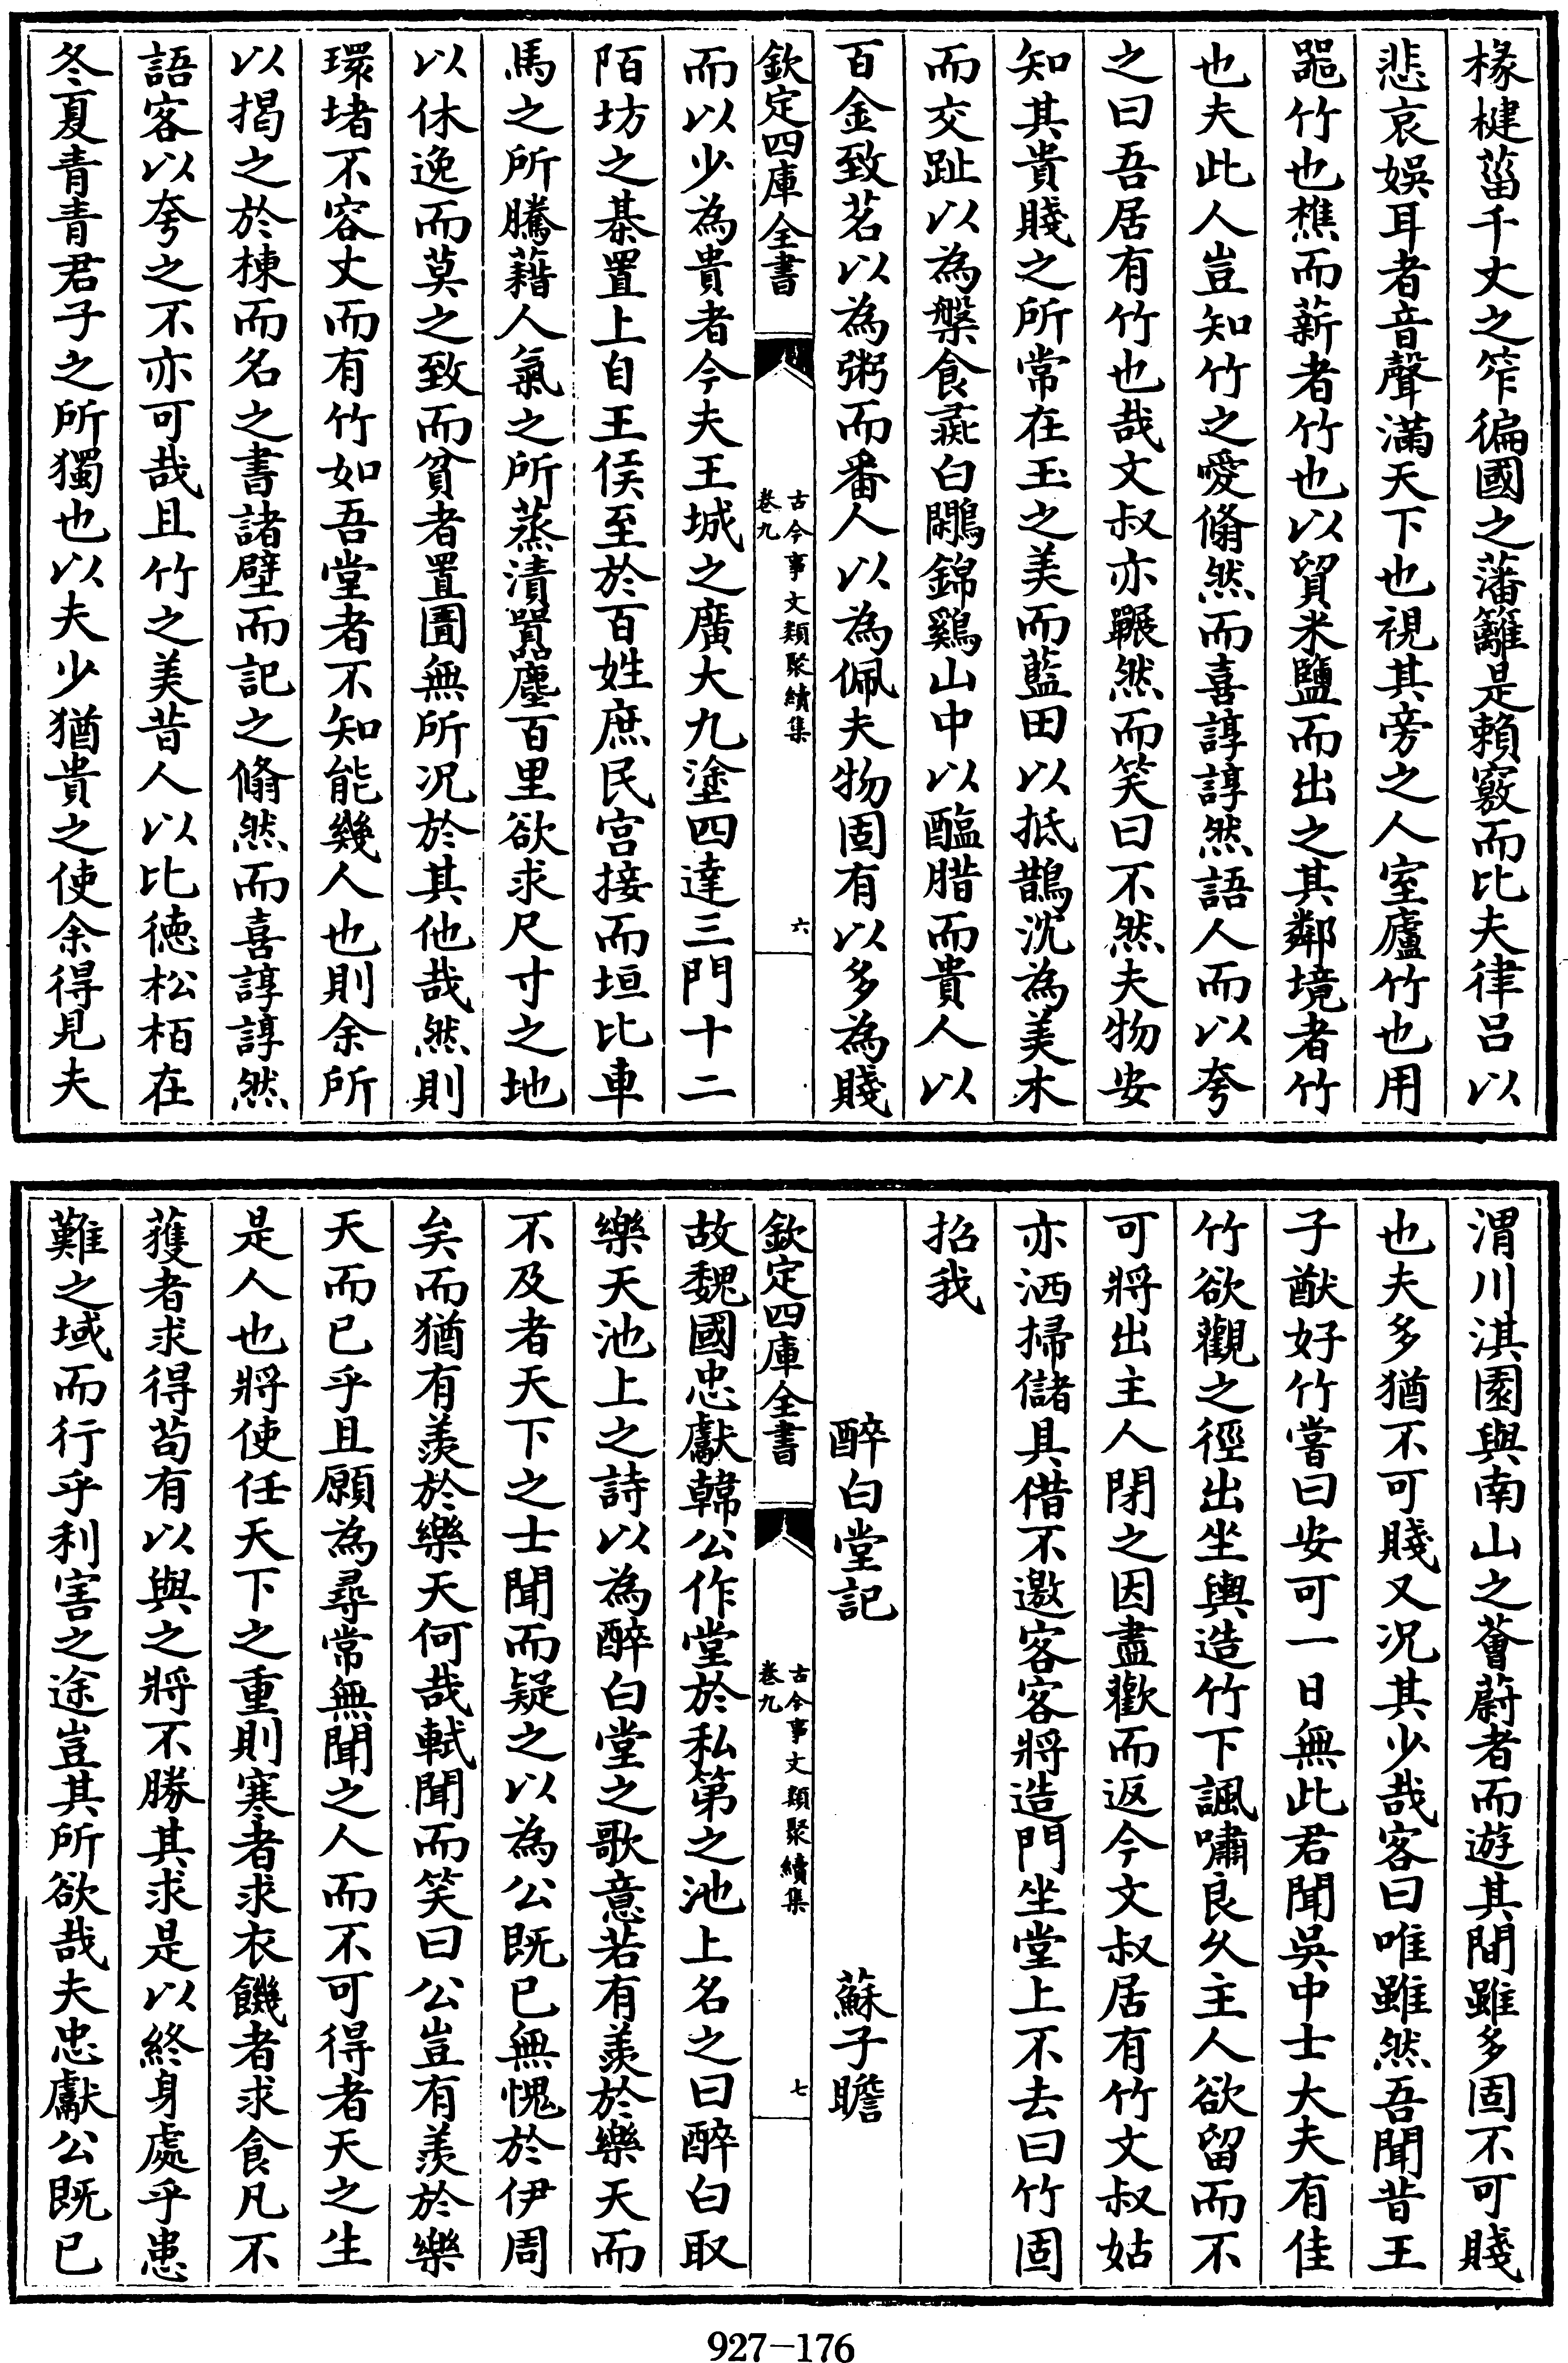 椽楗菑千丈之笮徧國之藩籬是賴竅而比夫律呂以
悲哀娛耳者音聲滿天下也視其旁之人室廬竹也用
噐竹也樵而薪者竹也以貿米鹽而出之其鄰境者竹
也夫此人豈知竹之愛翛然而喜諄諄然語人而以夸
之曰吾居有竹也哉文叔亦囅然而笑曰不然夫物安
知其貴賤之所常在玉之美而藍田以抵鵲沈為美木
而交趾以為槃食蔬白鷴錦鷄山中以醢腊而貴人以
百金致茗以為粥而番人以為佩夫物固有以多為賤
欽定四庫全書
古今事文類聚續集
卷九
六
而以少為貴者今夫王城之廣大九塗四達三門十二
陌坊之棊置上自王侯至於百姓庶民宫接而垣比車
馬之所騰藉人氣之所蒸漬囂塵百里欲求尺寸之地
以休逸而莫之致而貧者置圊無所况於其他哉然則
環堵不容丈而有竹如吾堂者不知能幾人也則余所
以揭之於棟而名之書諸壁而記之翛然而喜諄諄然
語客以夸之不亦可哉且竹之美昔人以比徳松栢在
冬夏青青君子之所獨也以夫少猶貴之使余得見夫
渭川淇園與南山之薈蔚者而遊其間雖多固不可賤
也夫多猶不可賤又况其少哉客曰唯雖然吾聞昔王
子猷好竹嘗曰安可一日無此君聞吳中士大夫有佳
竹欲觀之徑出坐輿造竹下諷嘯良久主人欲留而不
可將出主人閉之因盡歡而返今文叔居有竹文叔姑
亦洒掃儲具借不邀客客將造門坐堂上不去曰竹固
招我
醉白堂記 蘇子瞻
欽定四庫全書
古今事文類聚續集
卷九
七
故魏國忠獻韓公作堂於私第之池上名之曰醉白取
樂天池上之詩以為醉白堂之歌意若有羨於樂天而
不及者天下之士聞而疑之以為公既已無愧於伊周
矣而猶有羨於樂天何哉軾聞而笑曰公豈有羨於樂
天而已乎且願為尋常無聞之人而不可得者天之生
是人也將使任天下之重則寒者求衣饑者求食凡不
獲者求得苟有以與之將不勝其求是以終身處乎患
難之域而行乎利害之途豈其所欲哉夫忠獻公既已
927-176